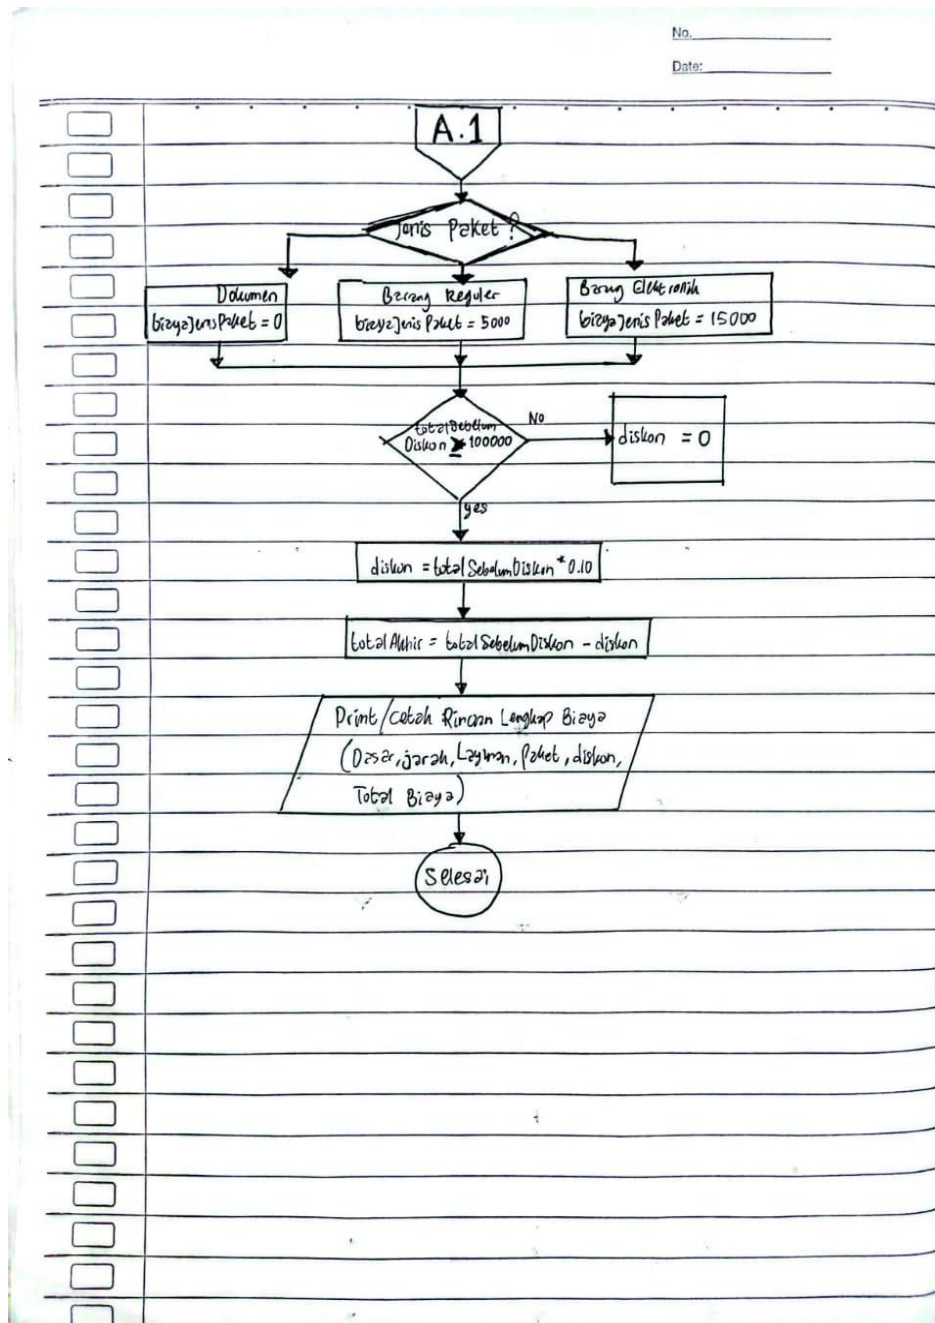 No.
Date:
A.1
Jenis Paket?
Dokumen
biayaJenisPaket = 0
Barang Reguler
biayaJenisPaket = 5000
Barang Elektronik
biayaJenisPaket = 15000
totalSebelum
Diskon ≥ 100000
No
diskon = 0
yes
diskon = totalSebelumDiskon * 0.10
totalAkhir = totalSebelumDiskon - diskon
Print/Cetak Rincian Lengkap Biaya
(Dasar, jarak, Layanan, Paket, diskon,
Total Biaya)
Selesai